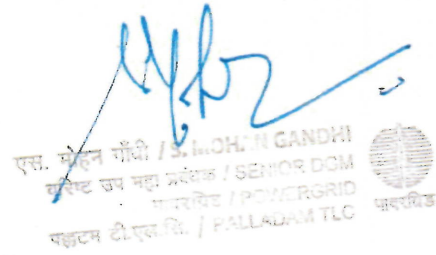 एस. मोहन गाँधी / S. MOHAN GANDHI
वरिष्ट उप महा प्रबंधक / SENIOR DGM
पावरग्रिड / POWERGRID
पल्लटम टी.एल.सि. / PALLADAM TLC
पावरग्रिड